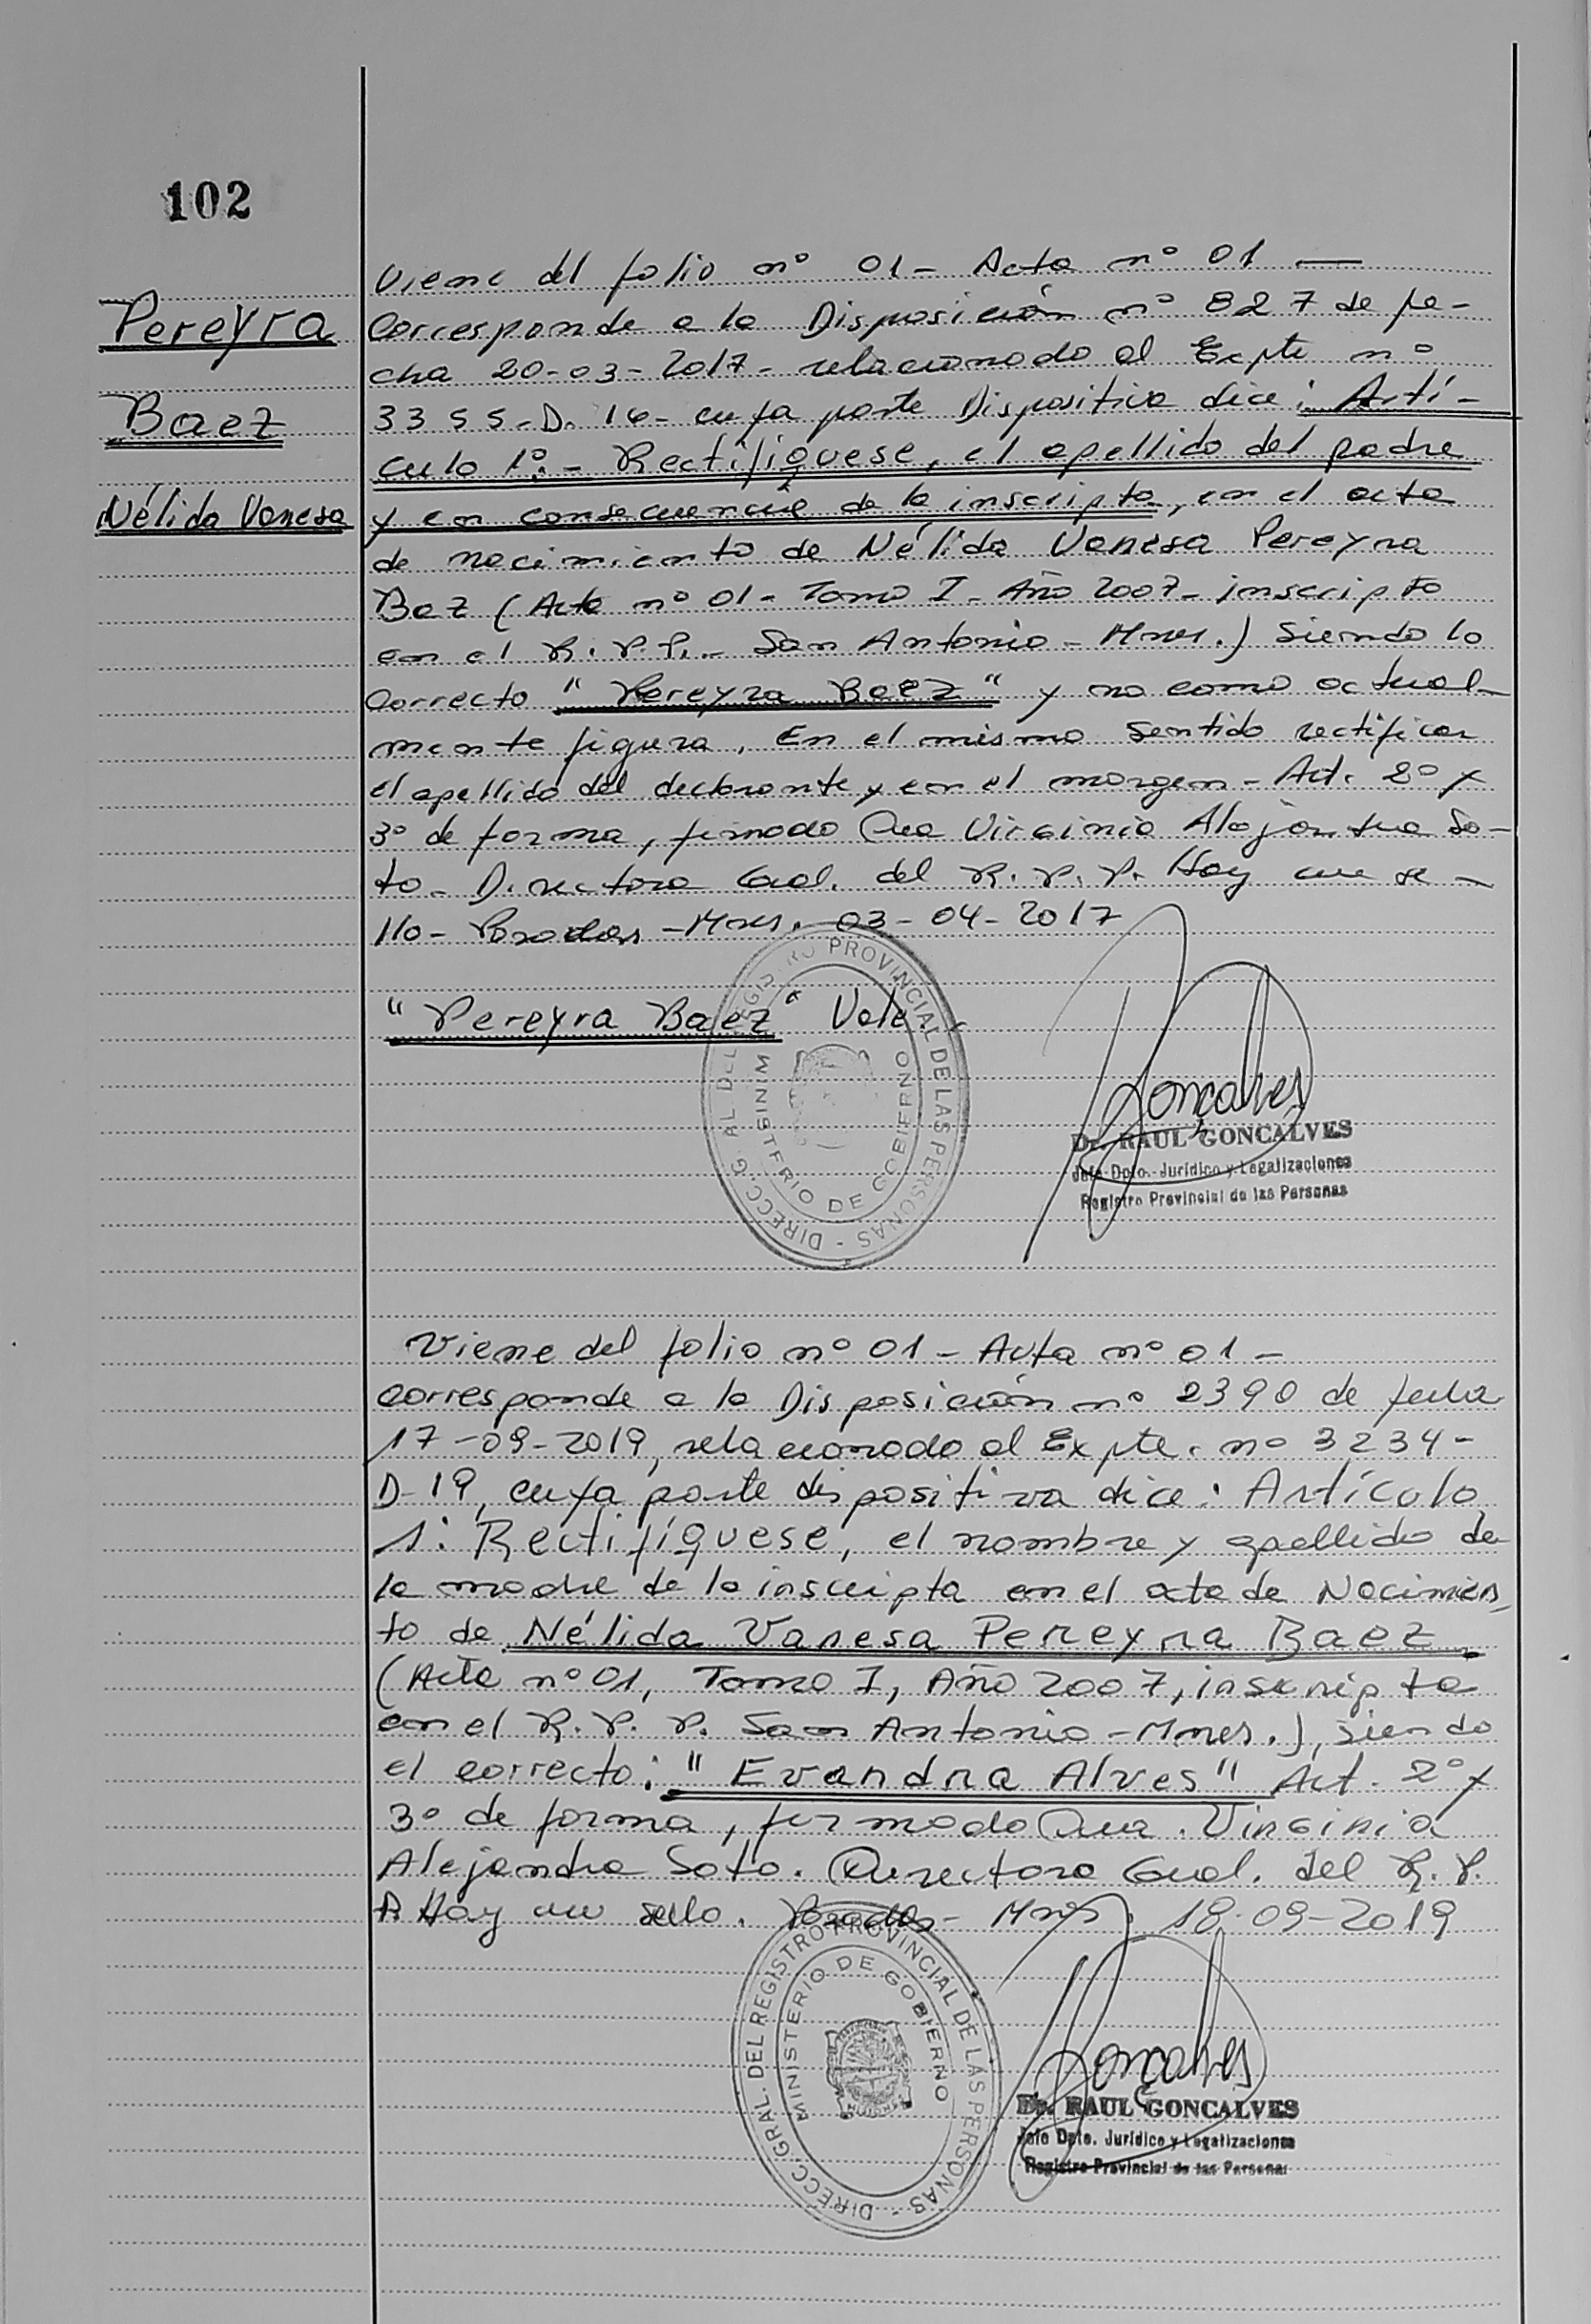 102
Pereyra
Baez
Nélida Vanesa
Viene del folio nº 01- Acta nº 01 —
Corresponde a la Disposición nº 827 de fe-
cha 20-03-2017- relacionado al Expte nº
3355-D. 16- cuya parte Dispositiva dice: Artí-
culo 1º.- Rectifíquese, el apellido del padre
y en consecuencia de la inscripta, en el acta
de nacimiento de Nélida Vanesa Pereyra
Baz (Acta nº 01- Tomo I- Año 2007- inscripta
en el R.P.P.- San Antonio- Mnes.) Siendo lo
correcto "Pereyra Baez" y no como actual-
mente figura. En el mismo Sentido rectificar
el apellido del declarante y en el margen- Art. 2º y
3º de forma, firmado Dra Virginia Alejandra So-
to- Directora Gral. del R.P.P. Hay un se-
llo- Posadas -Mnes. 03-04-2017
"Pereyra Baez" Vale.
DIRECC. GRAL. DEL REGISTRO PROVINCIAL DE LAS PERSONAS -
MINISTERIO DE GOBIERNO
Goncalves
Dr. RAUL GONCALVES
Jefe Dpto. Jurídico y Legalizaciones
Registro Provincial de las Personas
Viene del folio nº 01- Acta nº 01-
corresponde a la Disposición nº 2390 de fecha
17-09-2019, relacionado al Expte. nº 3234-
D-19, cuya parte dispositiva dice: Artículo
1: Rectifíquese, el nombre y apellido de
la madre de la inscripta en el acta de Nacimien-
to de Nélida Vanesa Pereyra Baez
(Acta nº 01, Tomo I, Año 2007, inscripta
en el R.P.P. San Antonio-Mnes.), siendo
el correcto: "Evandra Alves" Art. 2º y
3º de forma, firmado Dra. Virginia
Alejandra Soto. Directora Gral. del R.P.
P. Hay un sello. Posadas- Mnes. 18-09-2019
DIRECC. GRAL. DEL REGISTRO PROVINCIAL DE LAS PERSONAS -
MINISTERIO DE GOBIERNO
Goncalves
Dr. RAUL GONCALVES
Jefe Dpto. Jurídico y Legalizaciones
Registro Provincial de las Personas